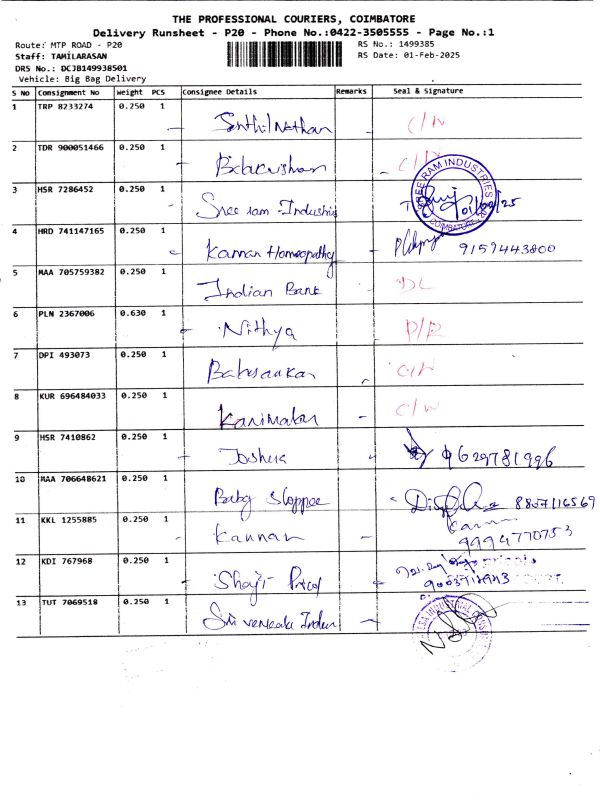 THE PROFESSIONAL COURIERS, COIMBATORE
Delivery Runsheet - P20 - Phone No.:0422-3505555 - Page No.:1
Route: MTP ROAD - P20 RS No.: 1499385
Staff: TAMILARASAN RS Date: 01-Feb-2025
DRS No.: DCJB149938501
Vehicle: Big Bag Delivery
S No Consignment No Weight PCS Consignee Details Remarks Seal & Signature
1 TRP 8233274 0.250 1
2 TDR 900051466 0.250 1
3 HSR 7286452 0.250 1 Sree ram Industris SREE RAM INDUSTRIES COIMBATORE
4 HRD 741147165 0.250 1 Kannan Homoeopathy 9159443800
5 MAA 705759382 0.250 1 Indian Bank DL
6 PLN 2367006 0.630 1 Nithya
7 DPI 493073 0.250 1
8 KUR 696484033 0.250 1
9 HSR 7410862 0.250 1 Joshua 9629781996
10 MAA 706648621 0.250 1 Baby Shoppee
11 KKL 1255885 0.250 1 Kannan 9994770753
12 KDI 767968 0.250 1
13 TUT 7069518 0.250 1